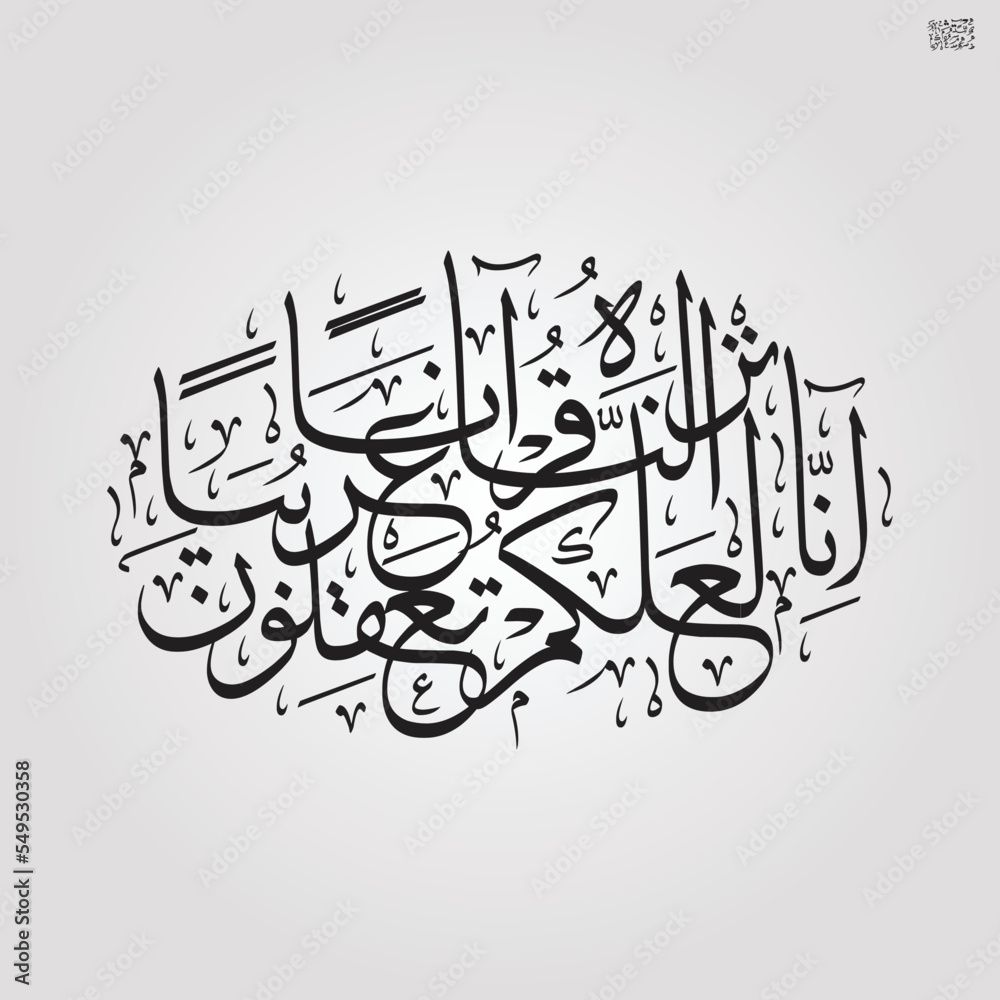 إِنَّا أَنزَلْنَاهُ قُرْآنًا عَرَبِيًّا
لَعَلَّكُمْ تَعْقِلُونَ
Adobe Stock | #549530358
Adobe Stock